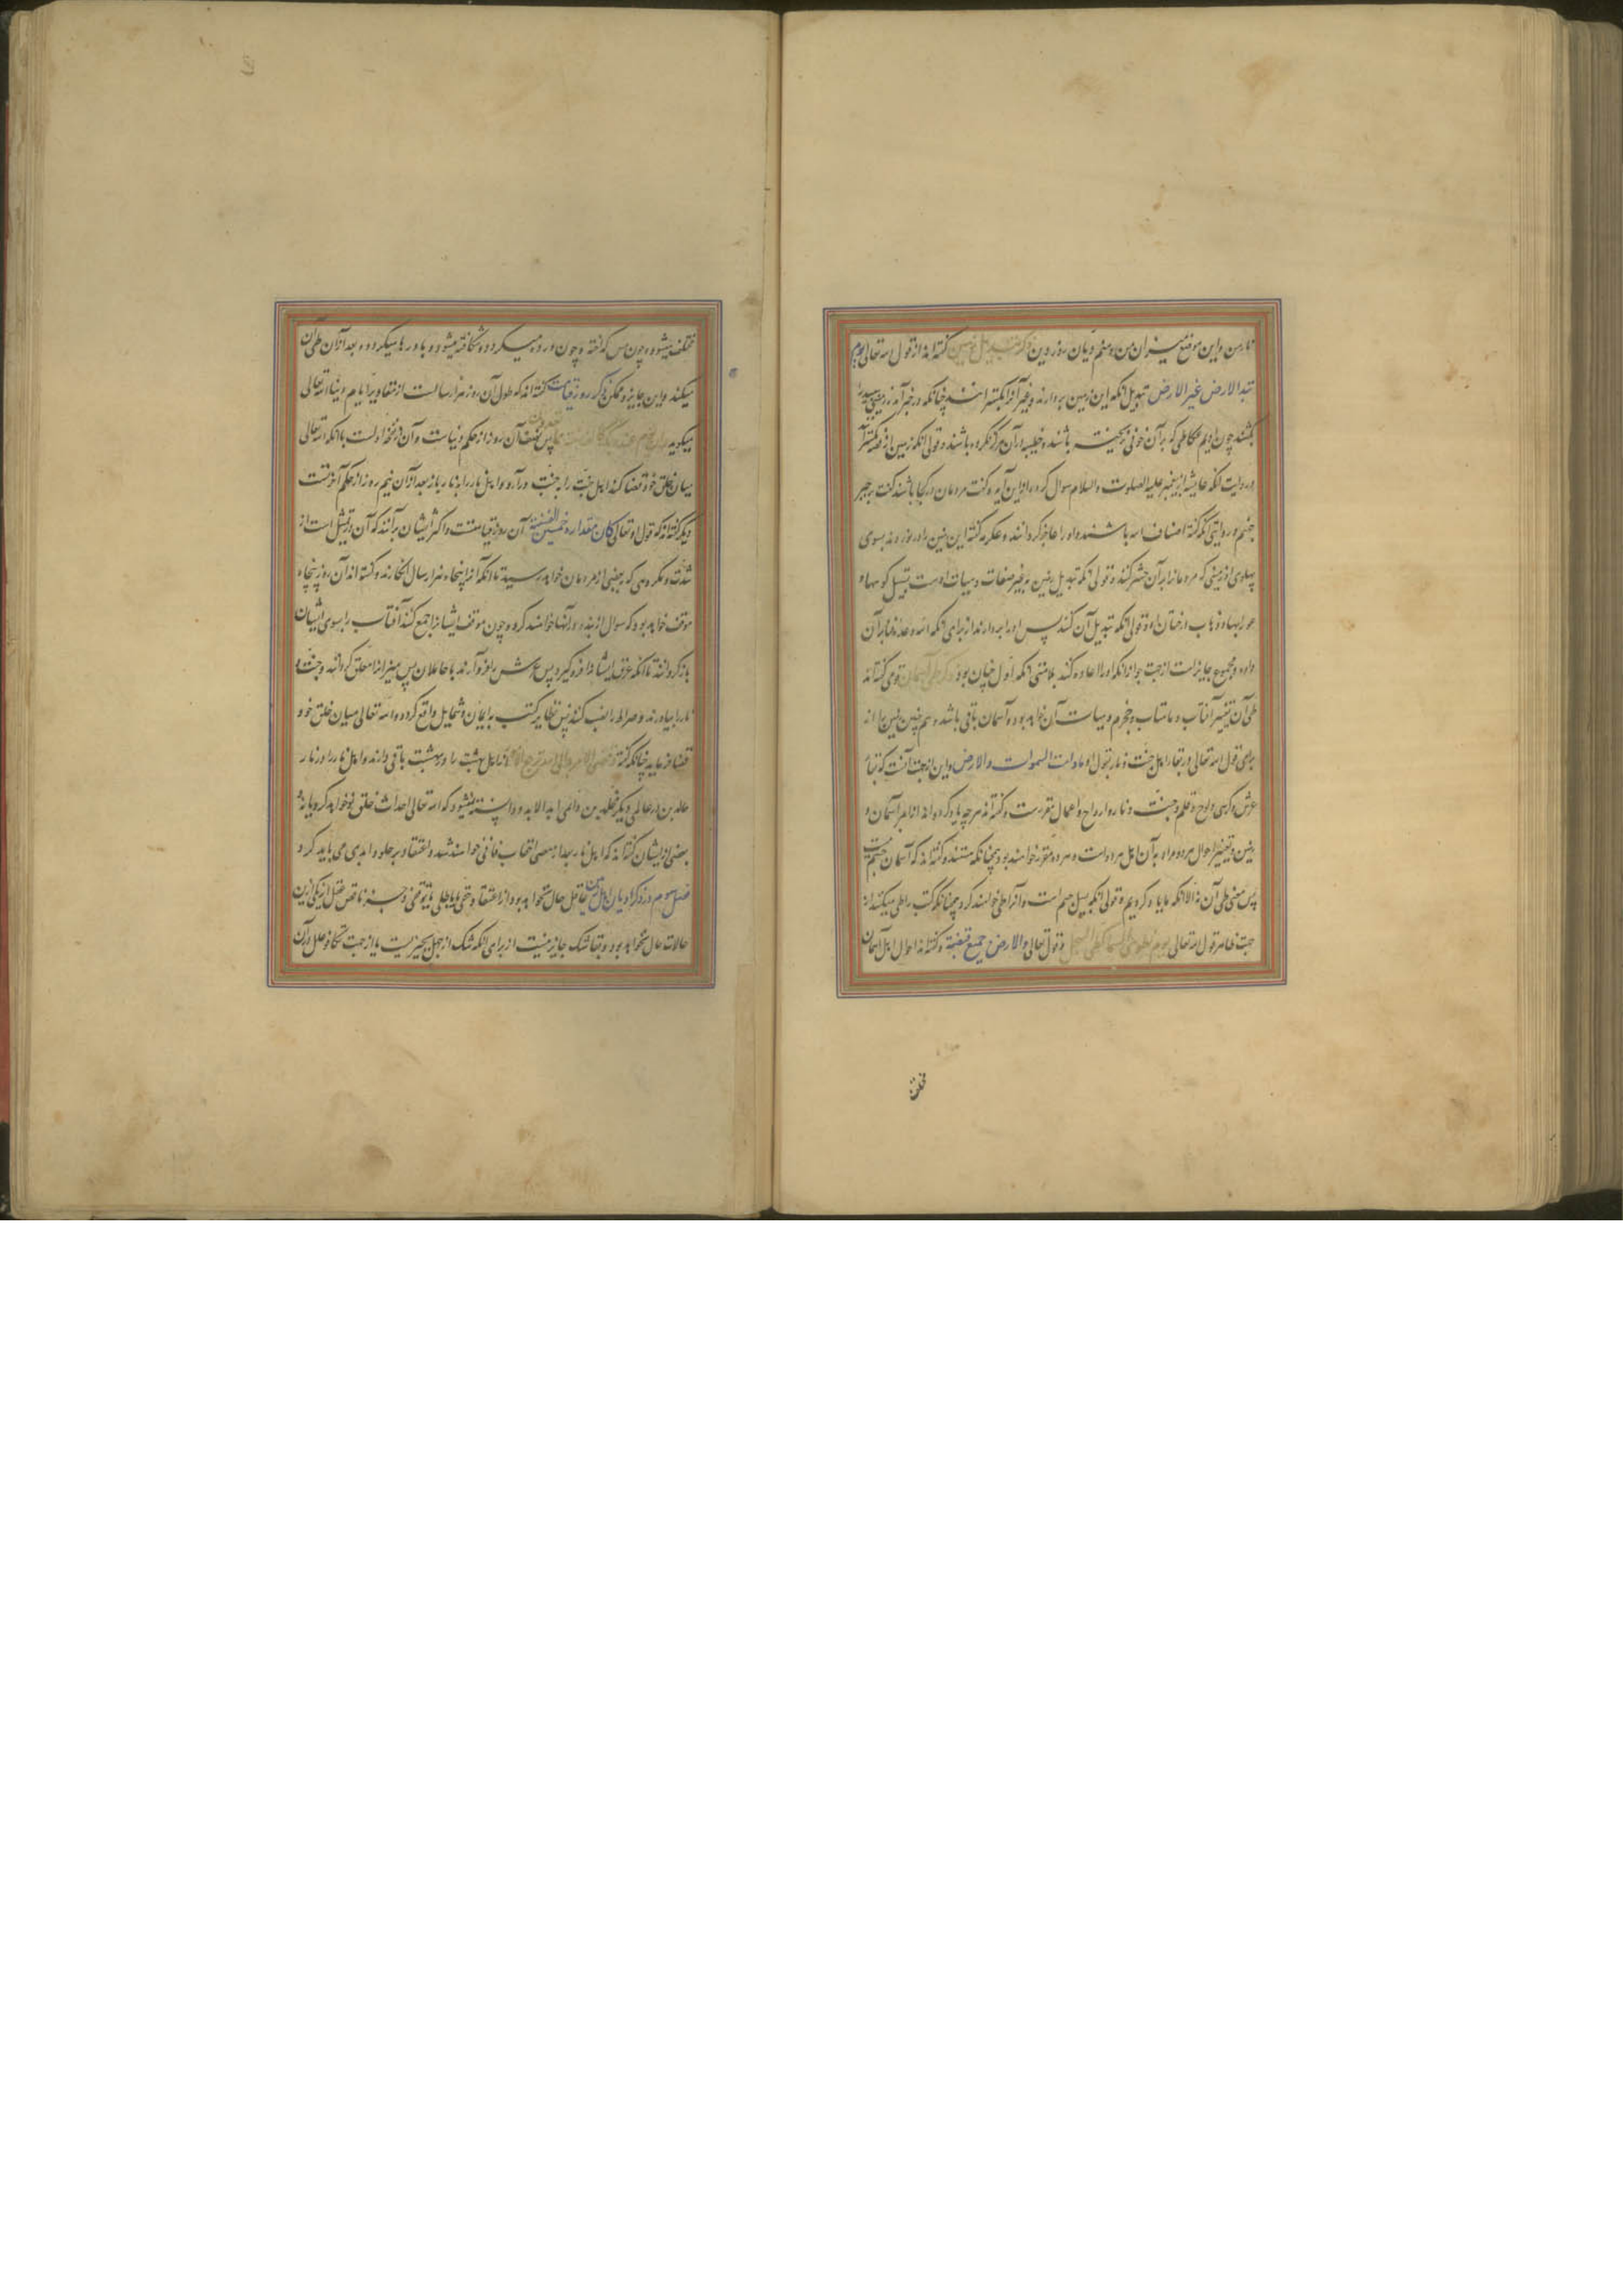 نار من و این موضع میزان من و منم دیان روز دین ذکر تبدیل زمین گفته‌اند از قول الله تعالی یوم
تبدل الارض غیر الارض تبدیل آنکه این زمین بردارند و غیر آنرا بگسترانند چنانکه در خبر آمد زمینی سپید را
بکشند چون ادیم عکاظی که بر آن خونی نریخته باشند و خطیئه در آن هرگز نکرده باشند و قولی آنکه زمین از نقره بگسترانند
در روایت آنکه عایشه از پیغمبر علیه الصلوت والسلام سوال کرد از این آیه و گفت مردمان در کجا باشند گفت بر جسر
جهنم و روایتی آنکه گفته اضیاف الله باشند و او را عاجز نگردانند و عکرمه گفته این زمین را در نوردند بسوی
پهلوی او زمینی که مردمانرا بر آن حشر کنند و قولی آنکه تبدیل زمین بر غیر صفات و هیات اوست بتسییل کوهها و
غور آبها و ذهاب درختان او و قولی آنکه تبدیل آن کنند پس او را بدارند از برای آنکه
داود و مجموع جایز است از جهت جواز آنکه او را اعاده کند بلا منتی آنکه اول چنان بود ذکر طی آسمان قومی گفته‌اند
طی آن تغییر آفتاب و ماهتاب و نجوم و هیات آن خواهد بود و آسمان باقی باشد و هم چنین زمین را از
برای قول الله تعالی در بقا اهل جنت و نار بقول او مادامت السموات والارض و این از جهت آنست که بقاء
عرش و کرسی و لوح و قلم و جنت و نار و ارواح و اعمال مقررست و گفته‌اند هر چه یاد کرده‌اند از امر آسمان و
زمین و تغییر احوال هر دو مراد به آن اهل هر دو است و هر دو مقرر خواهند بود همچنانکه هستند و گفته‌اند که آسمان جسم نیست
پس معنی طی آن نه الا آنکه ما یاد کردیم و قولی آنکه بل جسم است و آنرا طی خواهند کرد چنانکه کتب را طی میکنند از
جهت ظاهر قول الله تعالی یوم نطوی السماء کطی السجل و قول تعالی و الارض جمیع قبضته و گفته‌اند احوال اهل آسمان
مختلف
مختلف میشود و چون مس گداخته و چون ورده میگردد و شکافته میشود و بادرها میگردد و بعد از آن طی آن
میکند و این جایز و ممکن ذکر روز قیامت گفته‌اند که طول آن روز هزار سالست از مقادیر ایام دنیا الله تعالی
میگوید و ان یوما عند ربک کالف سنة مما تعدون پس نصف آن روز از حکم دنیاست و آن در نفخه اولست تا آنکه الله تعالی
میان خلق خود قضا کند اهل جنت را به جنت در آرد و اهل نار را به نار باز بعد از آن نیم روز از حکم آخرتست
دیگر گفته‌اند که قول او تعالی کان مقداره خمسین الف سنة آن روز قیامتست و اکثر ایشان بر آنند که آن در تمثیل است از
شدت و مکروهی که ببعضی از مردمان خواهد رسید تا آنکه آنرا پنجاه هزار سال انگارند و گفته‌اند آن روز پنجاه
موقف خواهد بود که سوال از بنده در آنها خواهند کرد و چون موقف ایشانرا جمع کند آفتاب را بسوی ایشان
باز گردانند تا آنکه عرق ایشانرا فرو گیرد پس عرش را فرو آرند با حاملان پس میزانرا معلق گردانند و جنت و
نار را بیاورند و صراط را نصب کنند پس تطایر کتب به ایمان و شمایل واقع گردد و الله تعالی میان خلق خود
قضا فرماید چنانکه گفته و قضی الامر والی الله ترجع الامور اهل بهشت را در بهشت باقی دارند و اهل نار را در نار
خالدین در عالمی دیگر مخلدین دایمی ابد الابد و دانسته نمیشود که الله تعالی احداث خلقی نو خواهد کرد یا نه
بعضی از ایشان گفته‌اند که اهل نار بعد از مضی احقاب فانی خواهند شد و اعتقاد بر خلود ابدی می باید کرد
فصل سوم در ذکر ادیان اهل زمین عاقل خالی نخواهد بود از اعتقاد حقی یا باطلی یا توقفی و جز ناقص عقل از یکی ازین
حالات خالی نخواهد بود و بقا شک جایز نیست از برای آنکه شک از جهل بچیزیست یا از جهت تکافو علل در آن